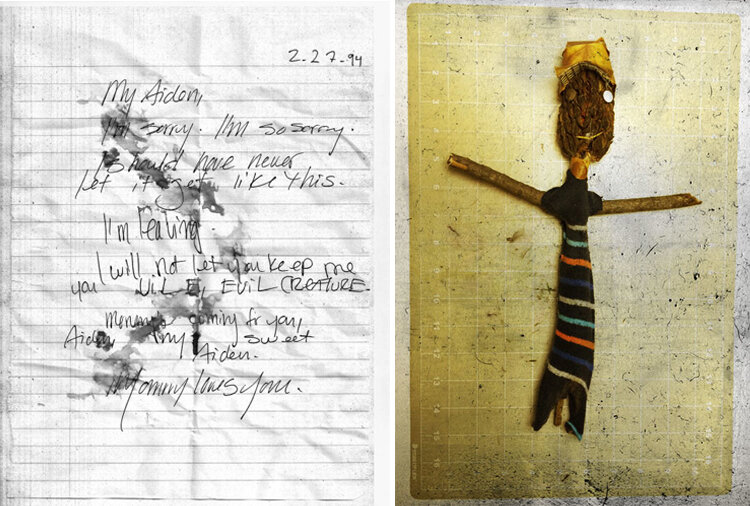 2-27-94
My Aiden,
I'm sorry. I'm so sorry.
I should have never
let it get like this.
I'm leaving.
I will not let you keep me
you VILE, EVIL CREATURE.
Mommy's coming fr you,
Aiden my sweet
Aiden.
Mommy loves you.